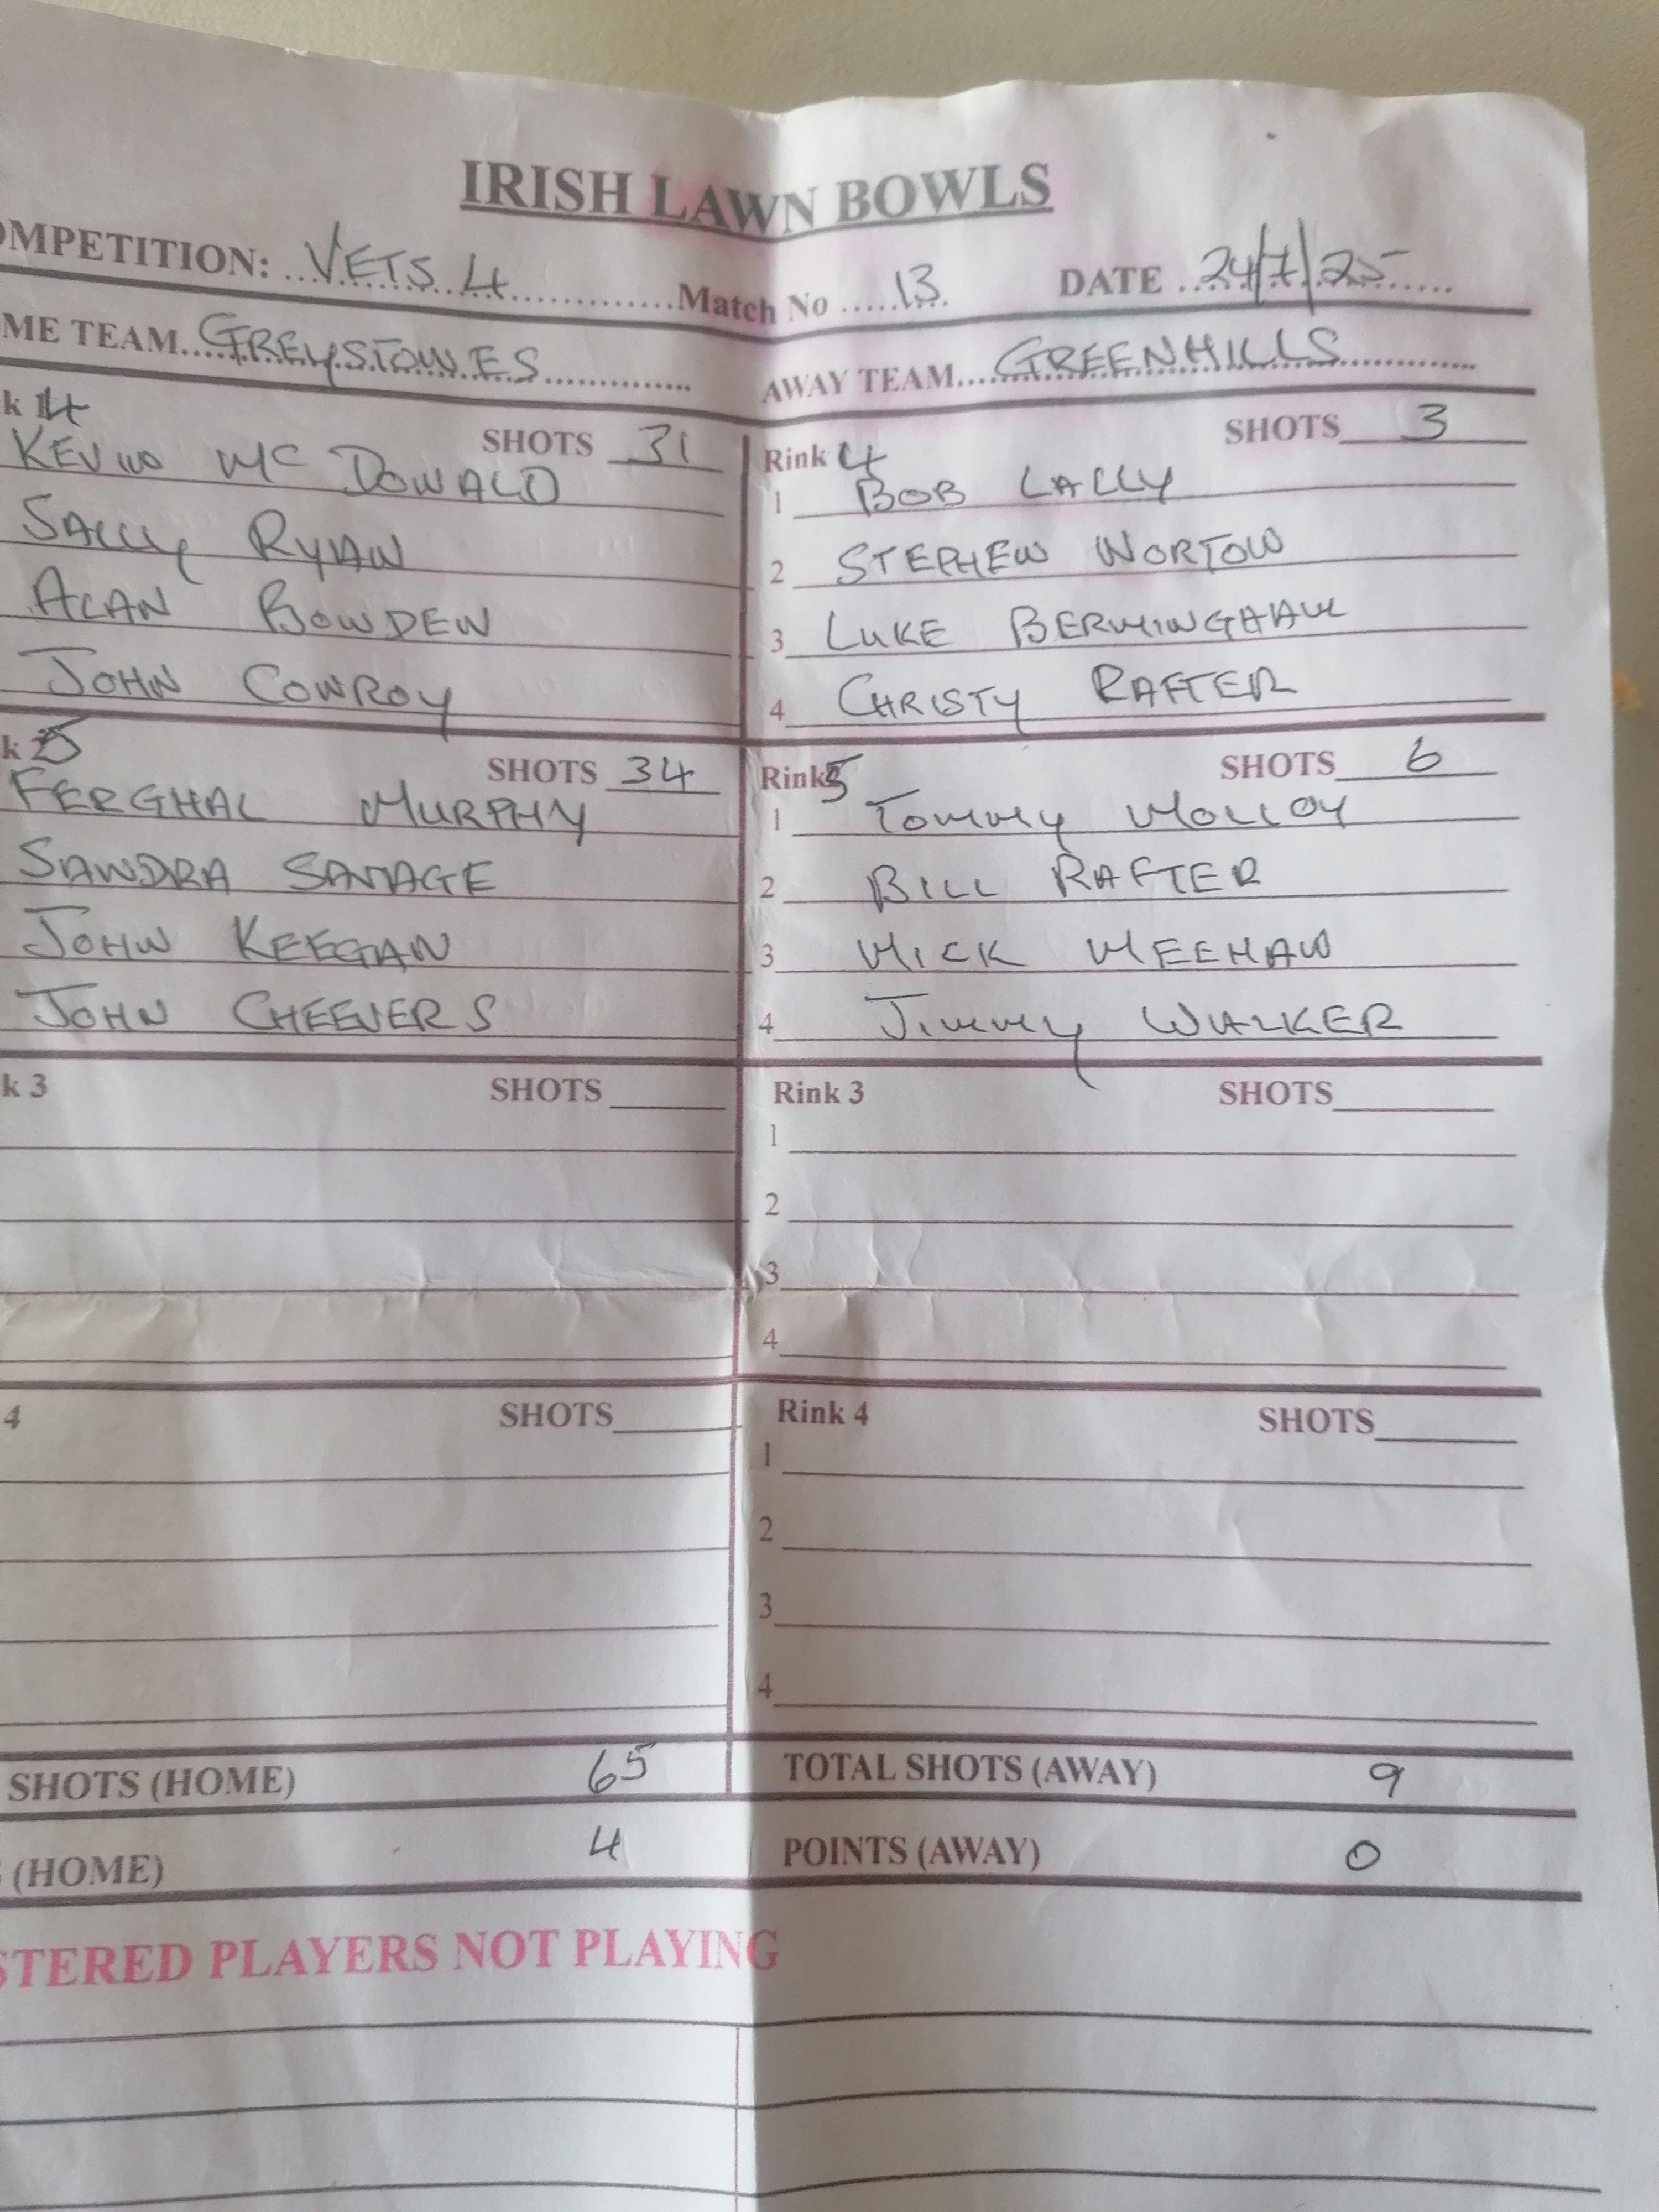 IRISH LAWN BOWLS
OMPETITION: VETS 4 Match No 13 DATE 24/7/25
ME TEAM GREYSTONES AWAY TEAM GREENHILLS
k 4 SHOTS 31
KEVIN MC DONALD
SALLY RYAN
ALAN BOWDEN
JOHN CONROY
Rink 4 SHOTS 3
1 BOB LALLY
2 STEPHEN NORTON
3 LUKE BERMINGHAM
4 CHRISTY RAFTER
k 5 SHOTS 34
FERGHAL MURPHY
SANDRA SAVAGE
JOHN KEEGAN
JOHN CHEEVERS
Rink 5 SHOTS 6
1 TOMMY MOLLOY
2 BILL RAFTER
3 MICK MEEHAN
4 JIMMY WALKER
k 3 SHOTS
Rink 3 SHOTS
1
2
3
4
4 SHOTS
Rink 4 SHOTS
1
2
3
4
SHOTS (HOME) 65 TOTAL SHOTS (AWAY) 9
(HOME) 4 POINTS (AWAY) 0
STERED PLAYERS NOT PLAYING